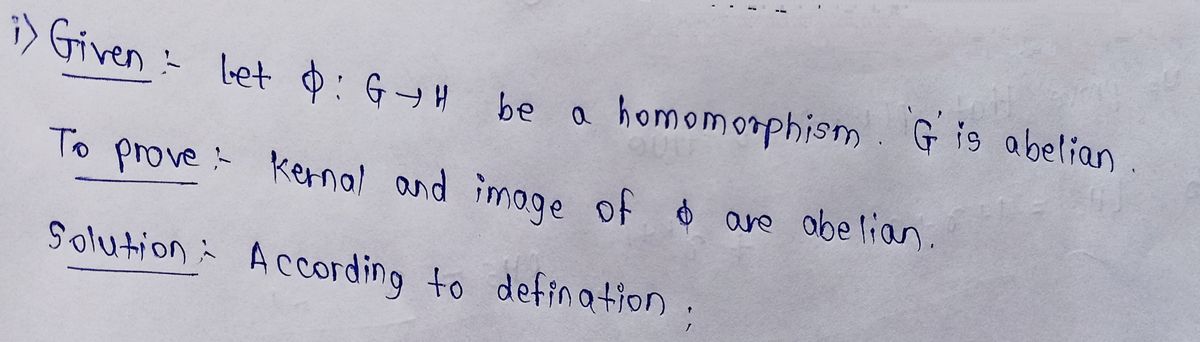 i) Given :- Let ϕ: G→H be a homomorphism. 'G' is abelian.
To prove :- Kernal and image of ϕ are abelian.
Solution :- According to defination ;